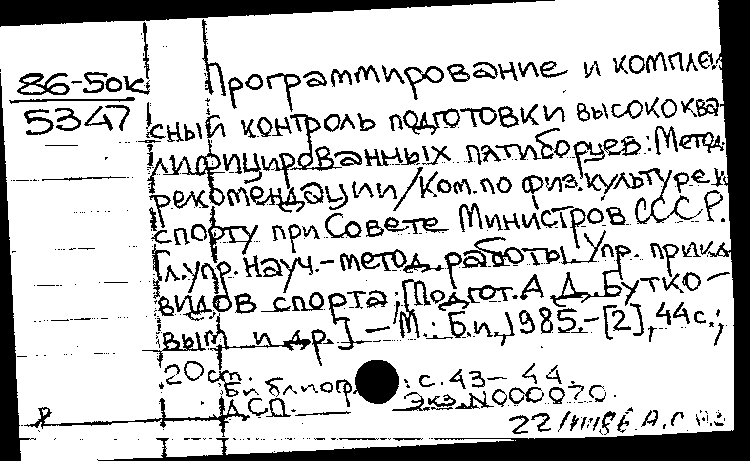 86-5ок
5347
Программирование и комплек
сный контроль подготовки высококва-
лифицированных пятиборцев: Метод.
рекомендации / Ком. по физ. культуре и
спорту при Совете Министров СССР.
Гл. упр. науч.-метод. работы. Упр. прикл
видов спорта; [Подгот. А. Д. Бутко-
вым и др.] - М.: Б.и., 1985.-[2], 44 с.;
20 см.
Библиогр.: с. 43-44.
ДСП. Экз. N000070.